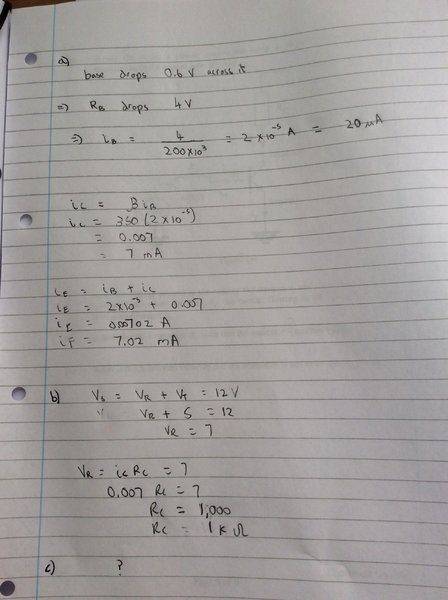 a)
base drops 0.6 V across it
=) RB drops 4V
=) iB = 4 / 200×10³ = 2 ×10⁻⁵ A = 20 μA
iC = β iB
iC = 350 (2×10⁻⁵)
= 0.007
= 7 mA
iE = iB + iC
iE = 2×10⁻⁵ + 0.007
iE = 0.00702 A
iE = 7.02 mA
b) Vs = VR + VT = 12V
" VR + 5 = 12
VR = 7
VR = iC RC = 7
0.007 RC = 7
RC = 1,000
RC = 1k Ω
c) ?